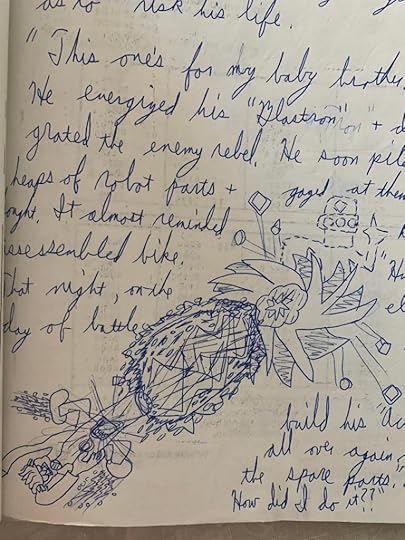 as to risk his life.
"This one's for my baby brother.
He energized his "Blastron" + d
grated the enemy rebel. He soon pile
heaps of robot parts + gazed at them
ought. It almost reminded
issessembled bike.
"Hu
That night, on the
el
day of battle
build his "Au
all over again,
the spare parts."
How did I do it??"